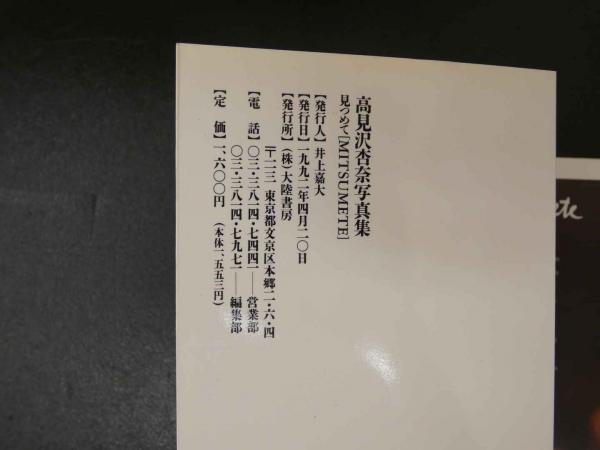 高見沢杏奈写真集
見つめて[MITSUMETE]
【発行人】井上嘉大
【発行日】一九九二年四月二〇日
【発行所】(株)大陸書房
〒一一三 東京都文京区本郷二・六・四
【電 話】〇三・三八一四・七四四一──営業部
〇三・三八一四・七九七一──編集部
【定 価】一、六〇〇円 (本体一、五五三円)